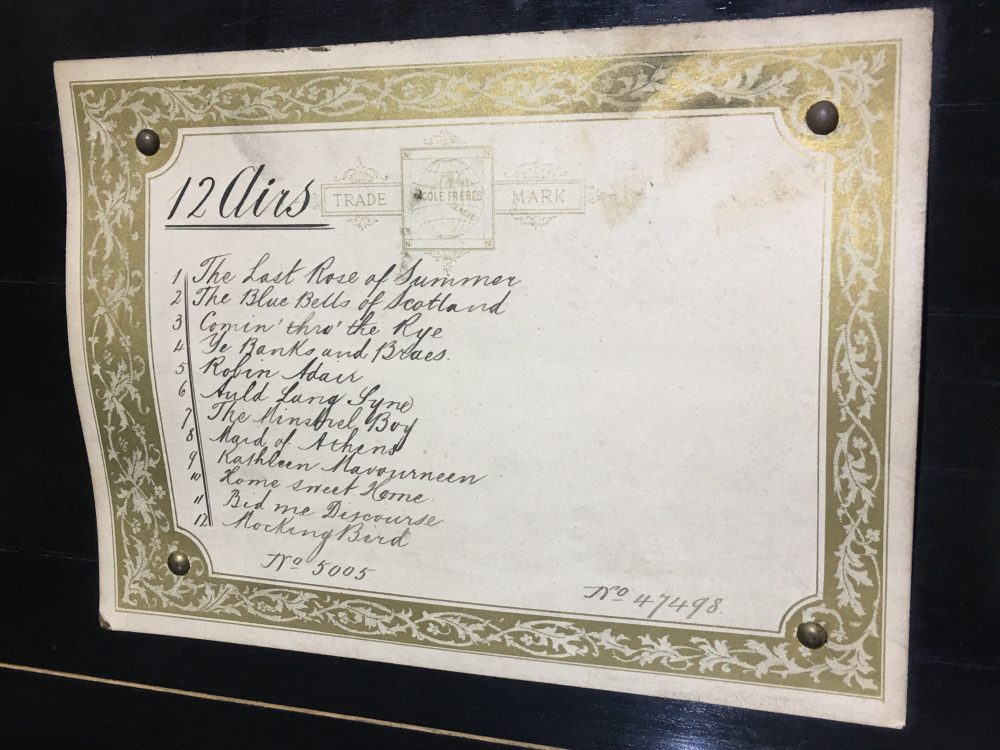 12 Airs
TRADE NICOLE FRERES MARK
GENEVE
N N
N N
1 The Last Rose of Summer
2 The Blue Bells of Scotland
3 Comin' thro' the Rye
4 Ye Banks and Braes.
5 Robin Adair
6 Auld Lang Syne
7 The Minstrel Boy
8 Maid of Athens
9 Kathleen Mavourneen
10 Home sweet Home.
11 Bid me Discourse
12 Mocking Bird
No 5005
No 47498.